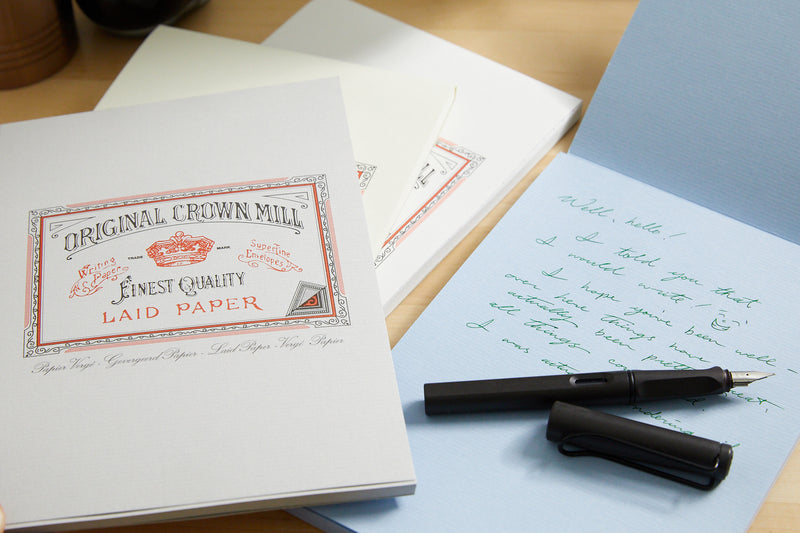 ORIGINAL CROWN MILL
Writing & Paper
TRADE MARK
Superfine Envelopes
FINEST QUALITY
LAID PAPER
Papier Vergé - Gevergeerd Papier - Laid Paper - Vergé Papier
Well, hello!
I told you that
I would write!
I hope you've been well -
over here things have
actually been pretty great,
all things
I was